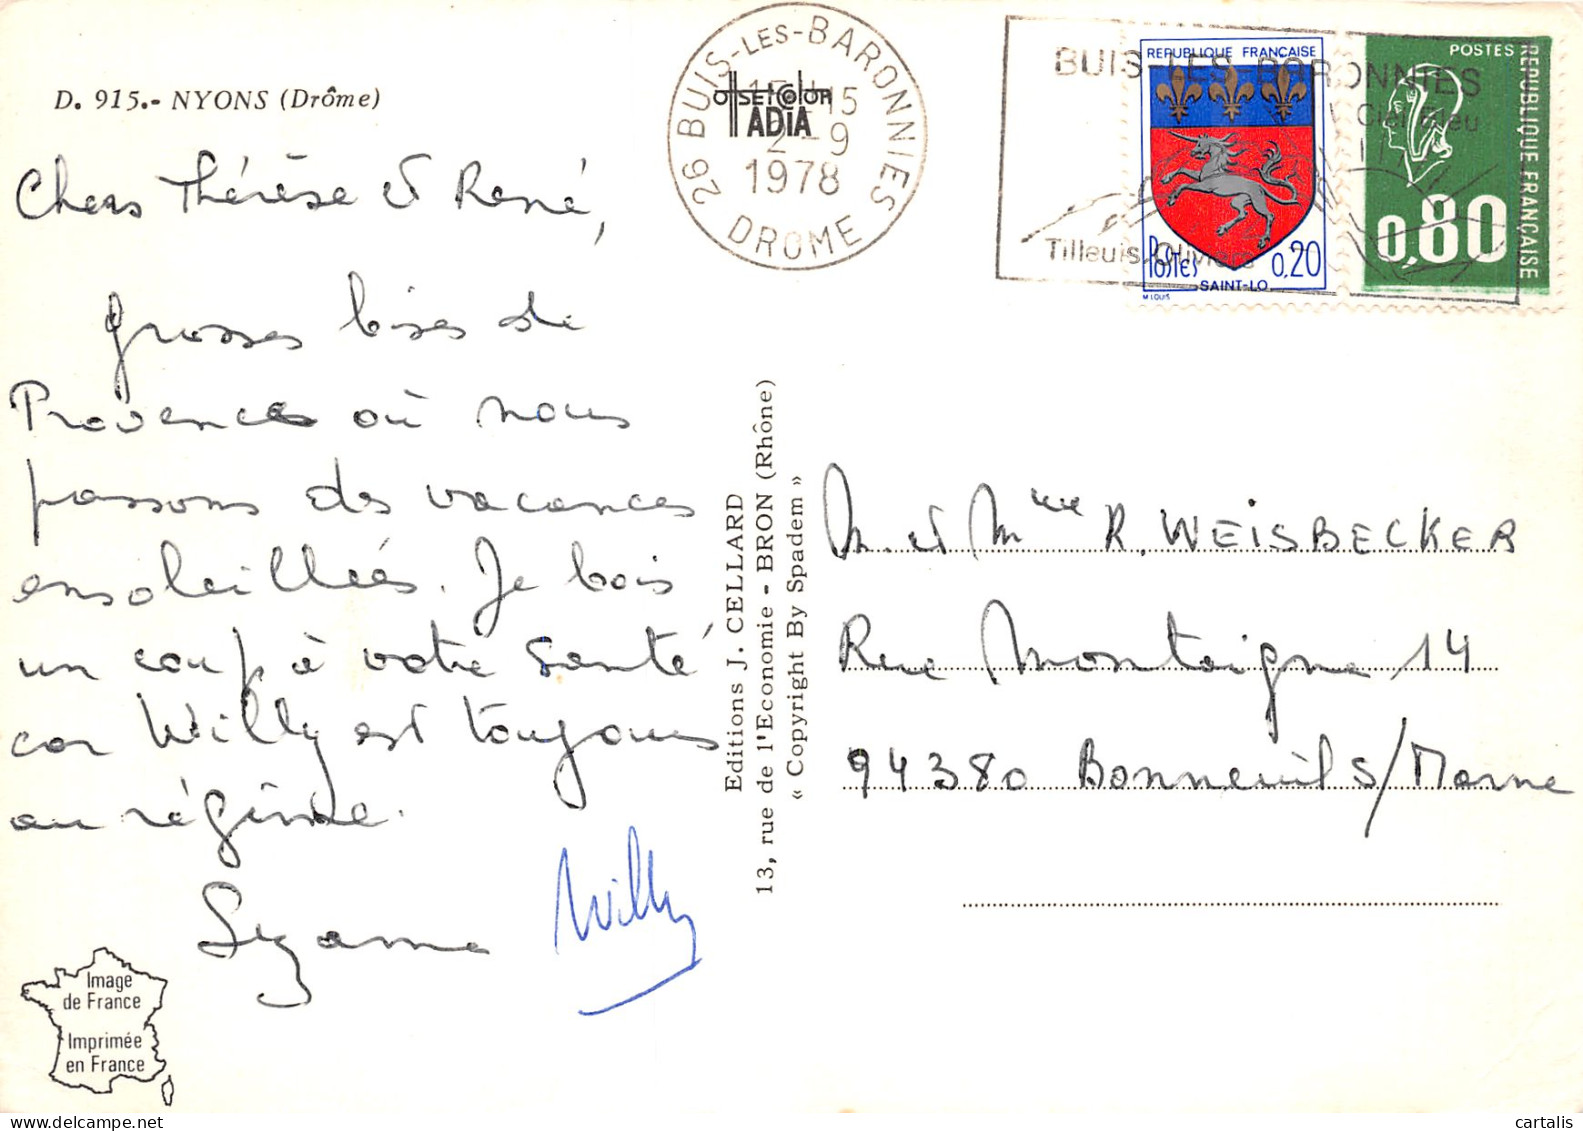 D. 915.- NYONS (Drôme)
Chers Thérèse et René,
grosses bises de
Provence où nous
passons des vacances
ensoleillées. Je bois
un coup à votre santé
car Willy est toujours
au régime.
Suzanne Willy
Image
de France
Imprimée
en France
Editions J. CELLARD
13, rue de l'Economie - BRON (Rhône)
« Copyright By Spadem »
OffSEtCOlOR
ADiA
26 BUIS-LES-BARONNIES
15H15
2-9
1978
DROME
BUIS-LES-BARONNIES
Ciel Bleu
Tilleuls Oliviers
REPUBLIQUE FRANÇAISE
POSTES 0,20
SAINT-LO
M LOUIS
POSTES
REPUBLIQUE FRANÇAISE
0,80
M. et Mme R. WEISBECKER
Rue Montaigne 14
94380 Bonneuil S/Marne
cartalis